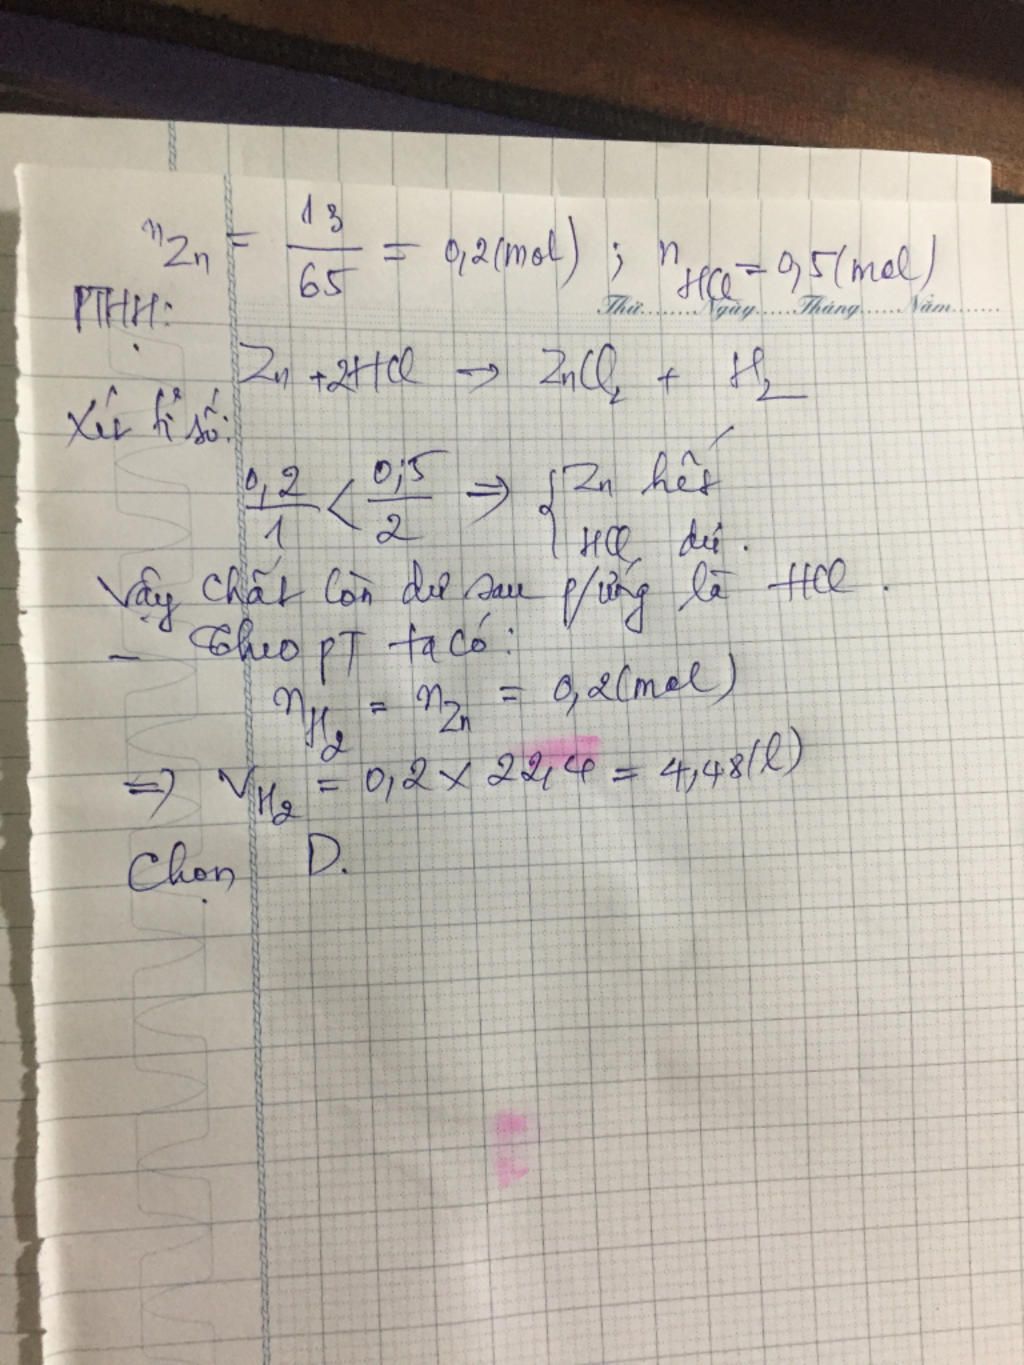 nZn = 13/65 = 0,2(mol) ; nHCl = 0,5(mol)
Thứ........Ngày......Tháng......Năm........
PTHH:
Zn + 2HCl → ZnCl2 + H2
Xét tỉ số:
0,2/1 < 0,5/2 ⇒ { Zn hết
HCl dư.
Vậy chất còn dư sau p/ứng là HCl.
- Theo pT ta có:
nH2 = nZn = 0,2(mol)
⇒ VH2 = 0,2 × 22,4 = 4,48(l)
Chọn D.